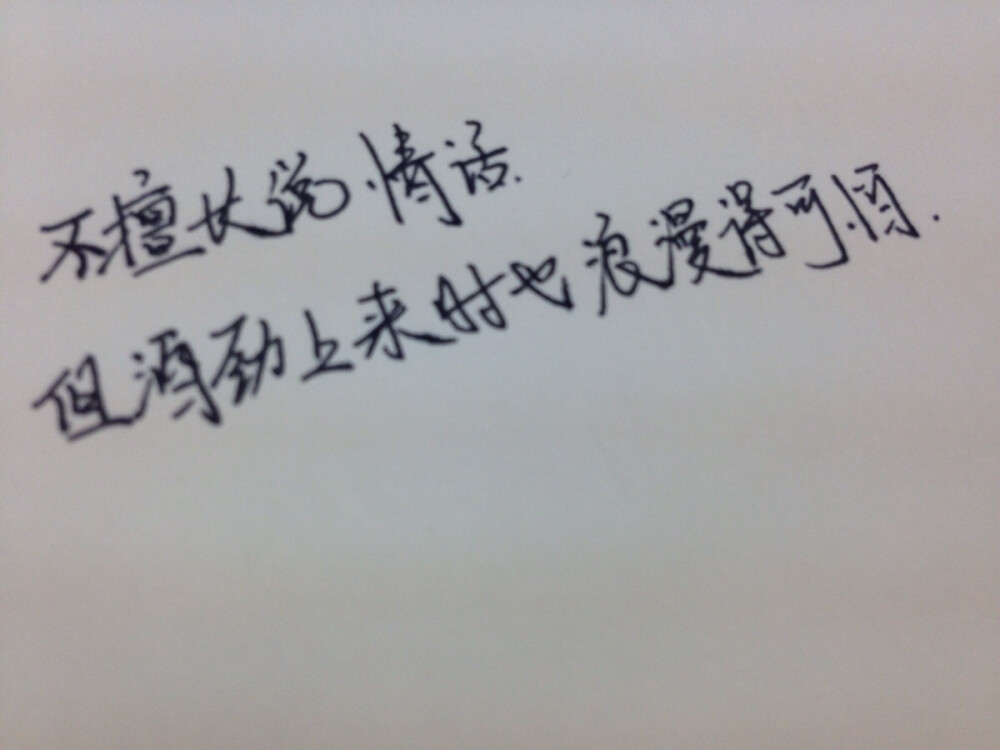 不擅长说情话.
但酒劲上来时也浪漫得可怕.